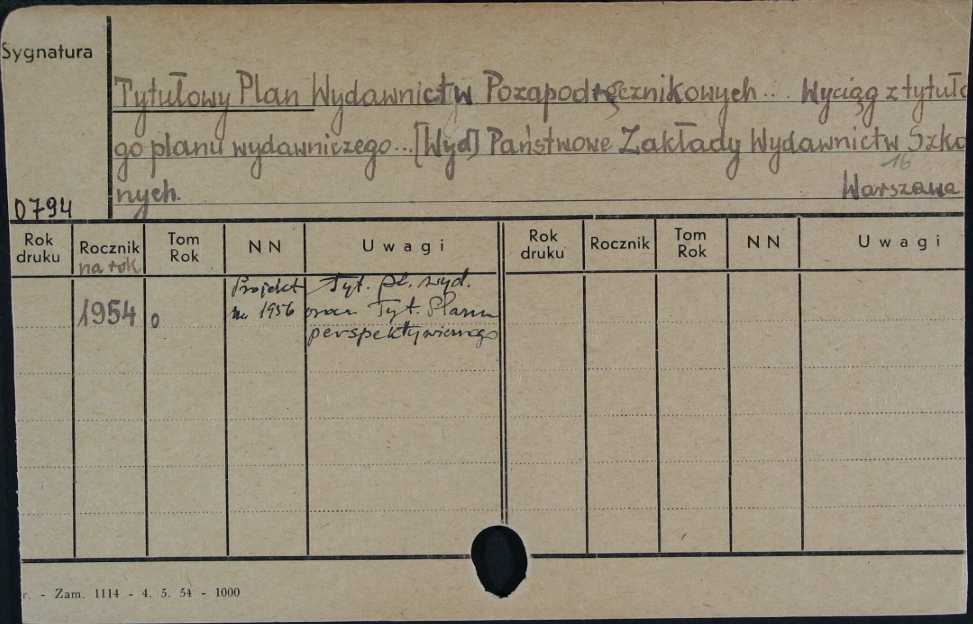 Sygnatura
Tytułowy Plan Wydawnictw Pozapodręcznikowych... Wyciąg z tytuło
go planu wydawniczego... [Wyd] Państwowe Zakłady Wydawnictw Szko
16
nych. Warszawa
0794
Rok druku Rocznik Tom Rok NN Uwagi Rok druku Rocznik Tom Rok NN Uwagi
na rok
Projekt Tyt. pl. wyd.
1954 0 na 1956 oraz Tyt. Planu
perspektywicznego
r. - Zam. 1114 - 4. 5. 54 - 1000